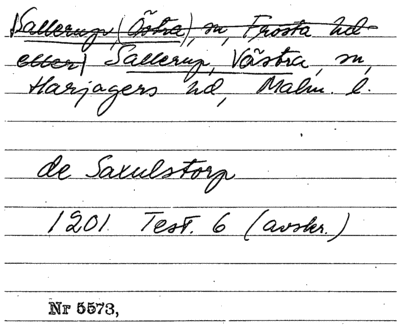 Sallerup, (Östra), sn, Frosta hd
eller) Sallerup, Västra, sn,
Harjagers hd, Malm. l.
de Saxulstorp
1201 Test. 6 (avskr.)
Nr 5573,